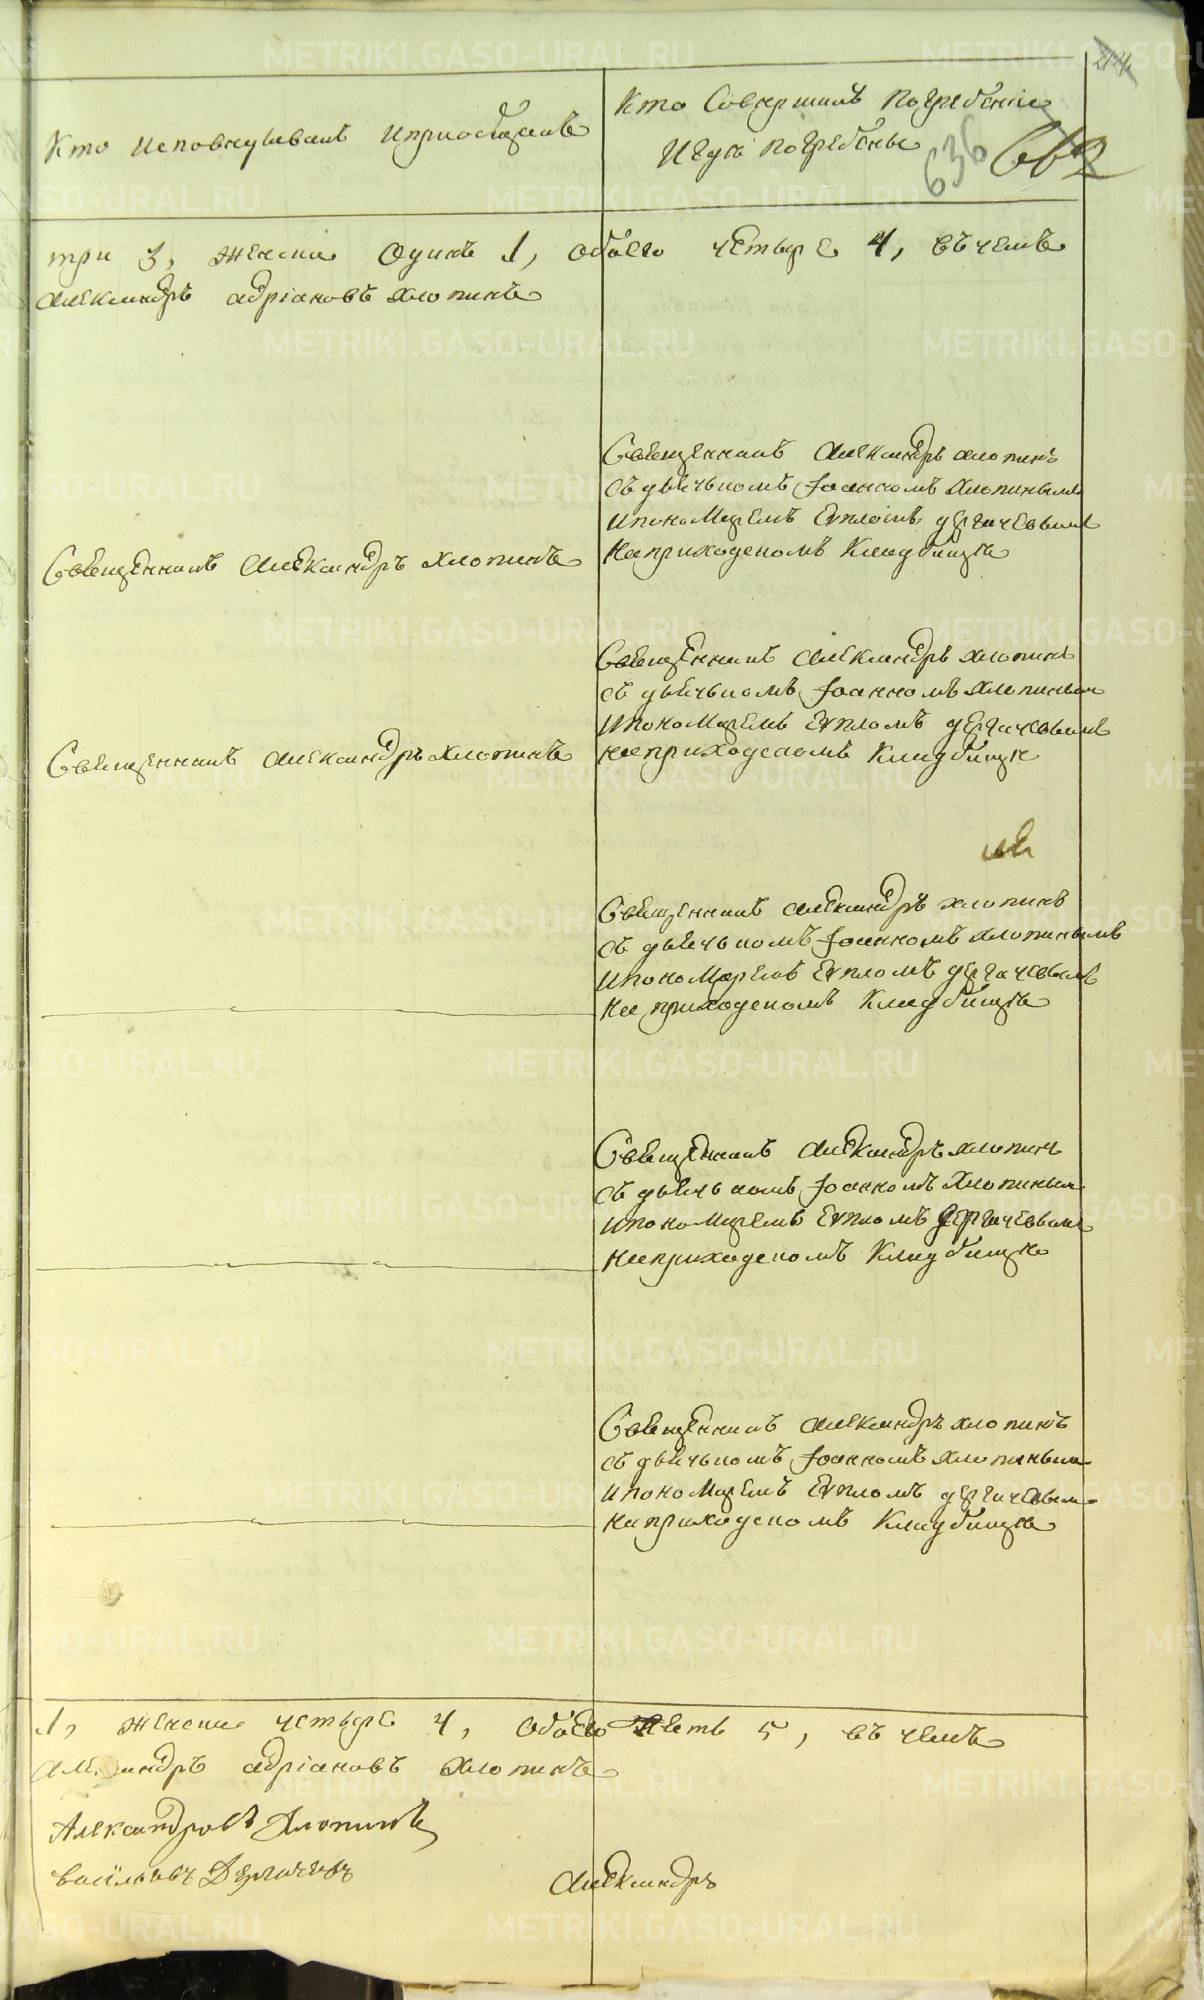 Кто исповедывалъ и приобщалъ
Кто Совершилъ погребенiе
и где погребены
636 662
три 3, женска Одинъ 1, обоего четыре 4, въ чемъ
александръ адрiановъ хлопинъ
Священникъ Александръ хлопинъ
Священникъ Александръ хлопинъ
съ дьячькомъ Iоанномъ хлопинымъ
и пономаремъ Еѵпломъ дергачевымъ
на приходскомъ кладбищѣ
Священникъ Александръ хлопинъ
Священникъ Александръ хлопинъ
съ дьячькомъ Iоанномъ хлопинымъ
и пономаремъ Еѵпломъ дергачевымъ
на приходскомъ кладбищѣ
Священникъ Александръ хлопинъ
съ дьячькомъ Iоанномъ хлопинымъ
и пономаремъ Еѵпломъ дергачевымъ
на приходскомъ кладбищѣ
Священникъ Александръ хлопинъ
съ дьячькомъ Iоанномъ хлопинымъ
и пономаремъ Еѵпломъ дергачевымъ
на приходскомъ кладбищѣ
Священникъ Александръ хлопинъ
съ дьячькомъ Iоанномъ хлопинымъ
и пономаремъ Еѵпломъ дергачевымъ
на приходскомъ кладбищѣ
1, женска четыре 4, обоего петь 5, въ чемъ
александръ адрiановъ хлопинъ
Александровъ Хлопинъ
васильевъ Дергачевъ
Александръ
METRIKI.GASO-URAL.RU